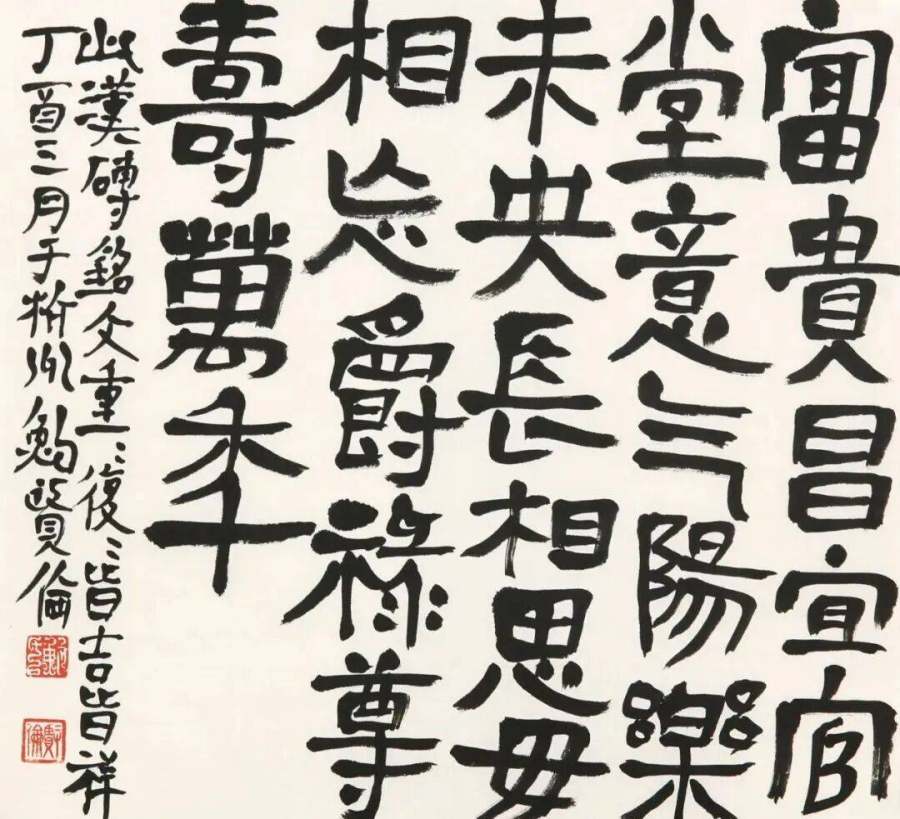 富貴昌宜官
堂意气陽樂
未央長相思毋
相忘爵祿尊
壽萬年
此漢磚銘文重〻復〻皆吉皆祥
丁酉三月于州鮑賢倫